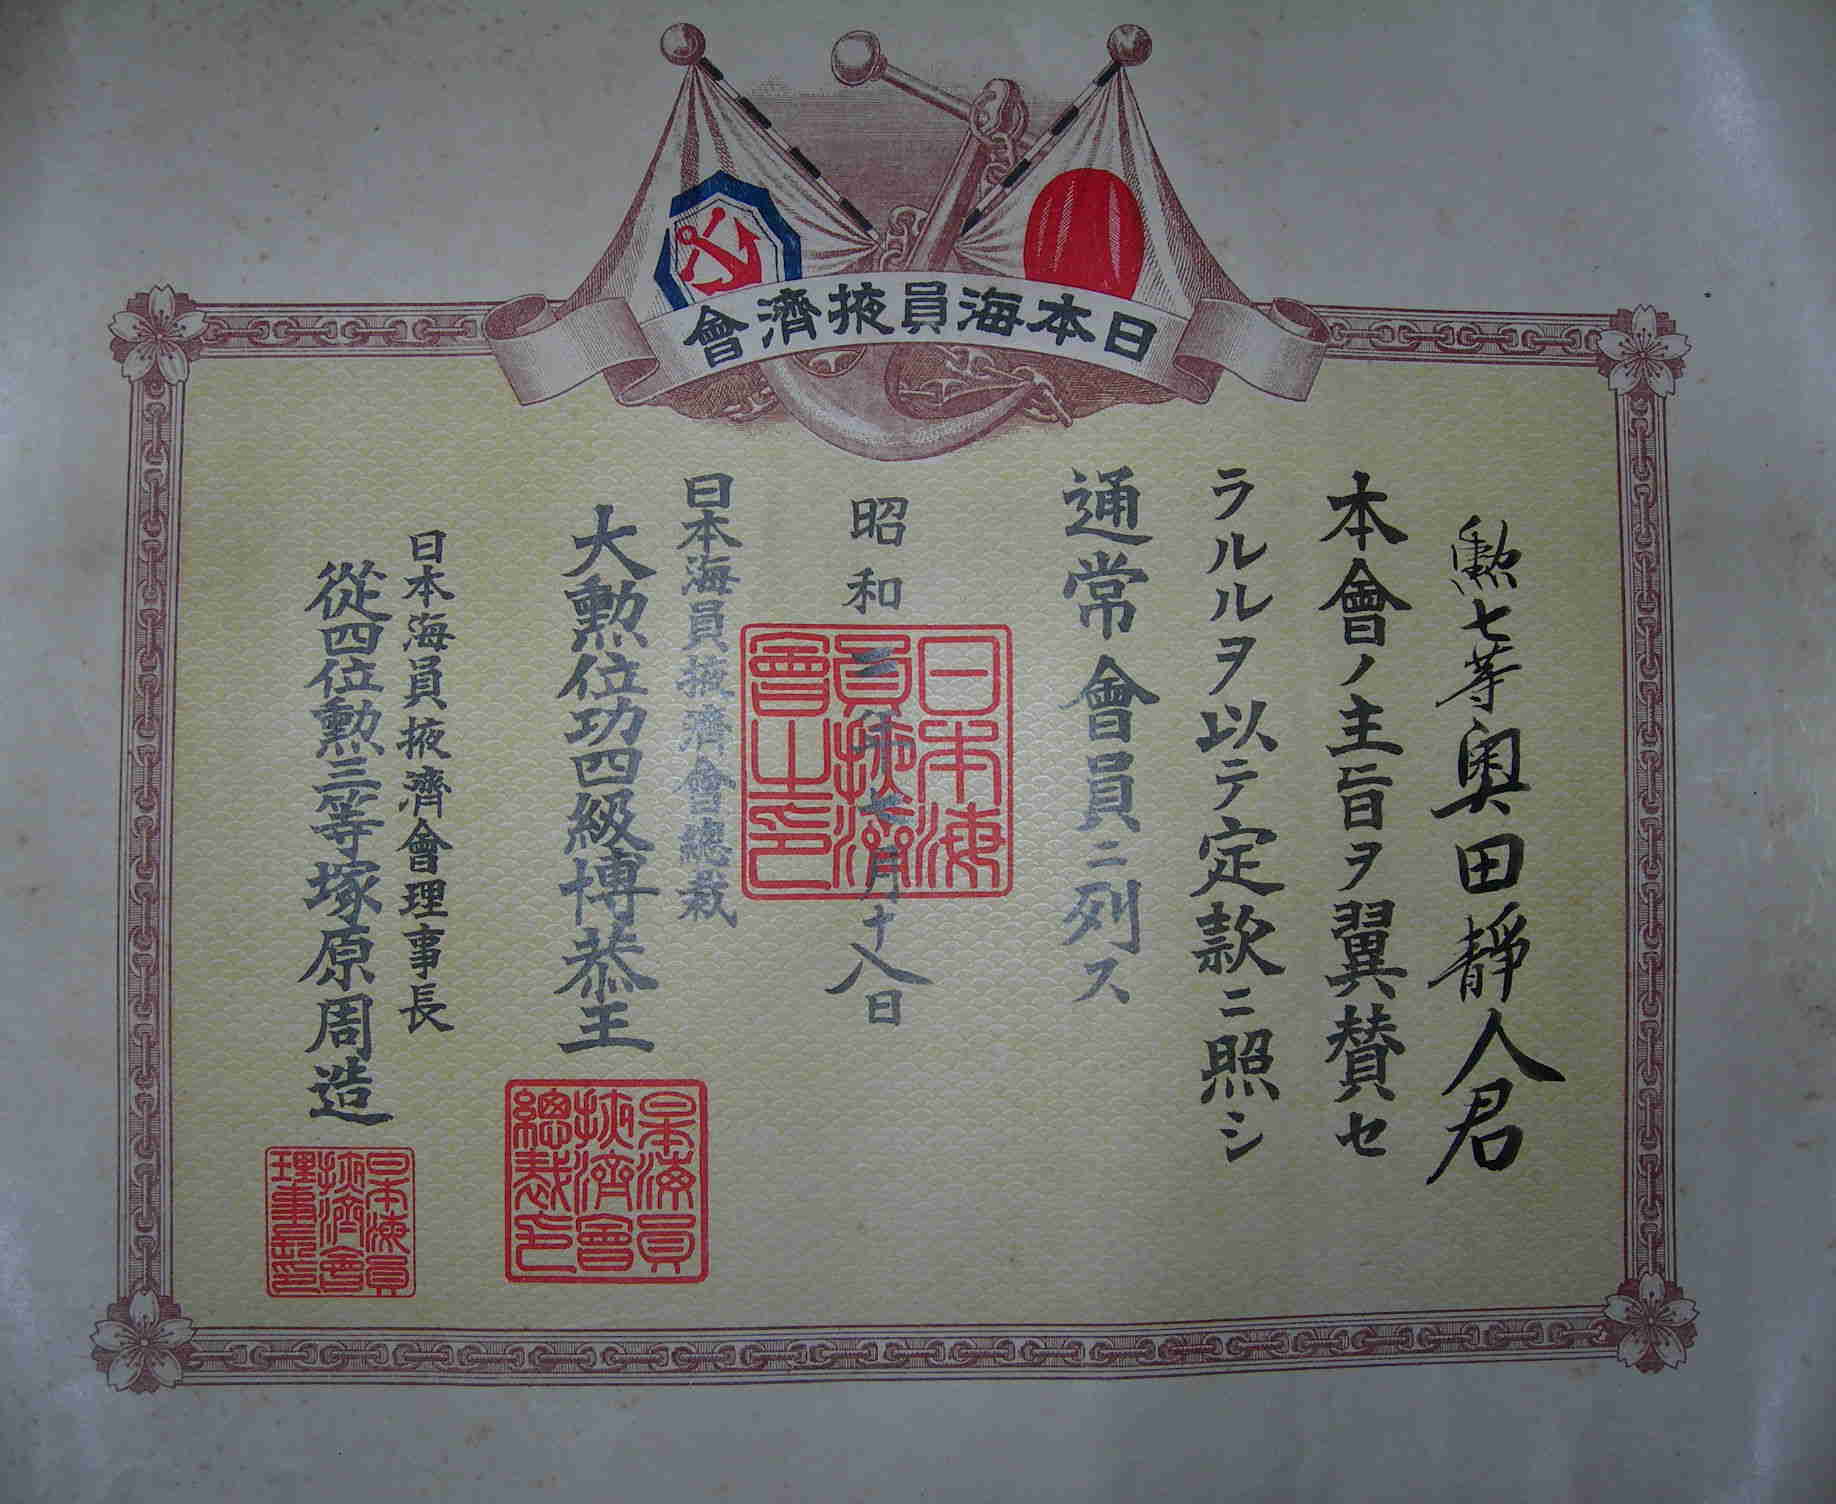 日本海員掖濟會
勲七等奥田靜人君
本會ノ主旨ヲ翼賛セ
ラルルヲ以テ定款ニ照シ
通常會員ニ列ス
昭和三年七月十八日
日本海員掖濟會之印
日本海員掖濟會總裁
大勲位功四級博恭王
日本海員掖濟會總裁印
日本海員掖濟會理事長
從四位勲三等塚原周造
日本海員掖濟會理事長印